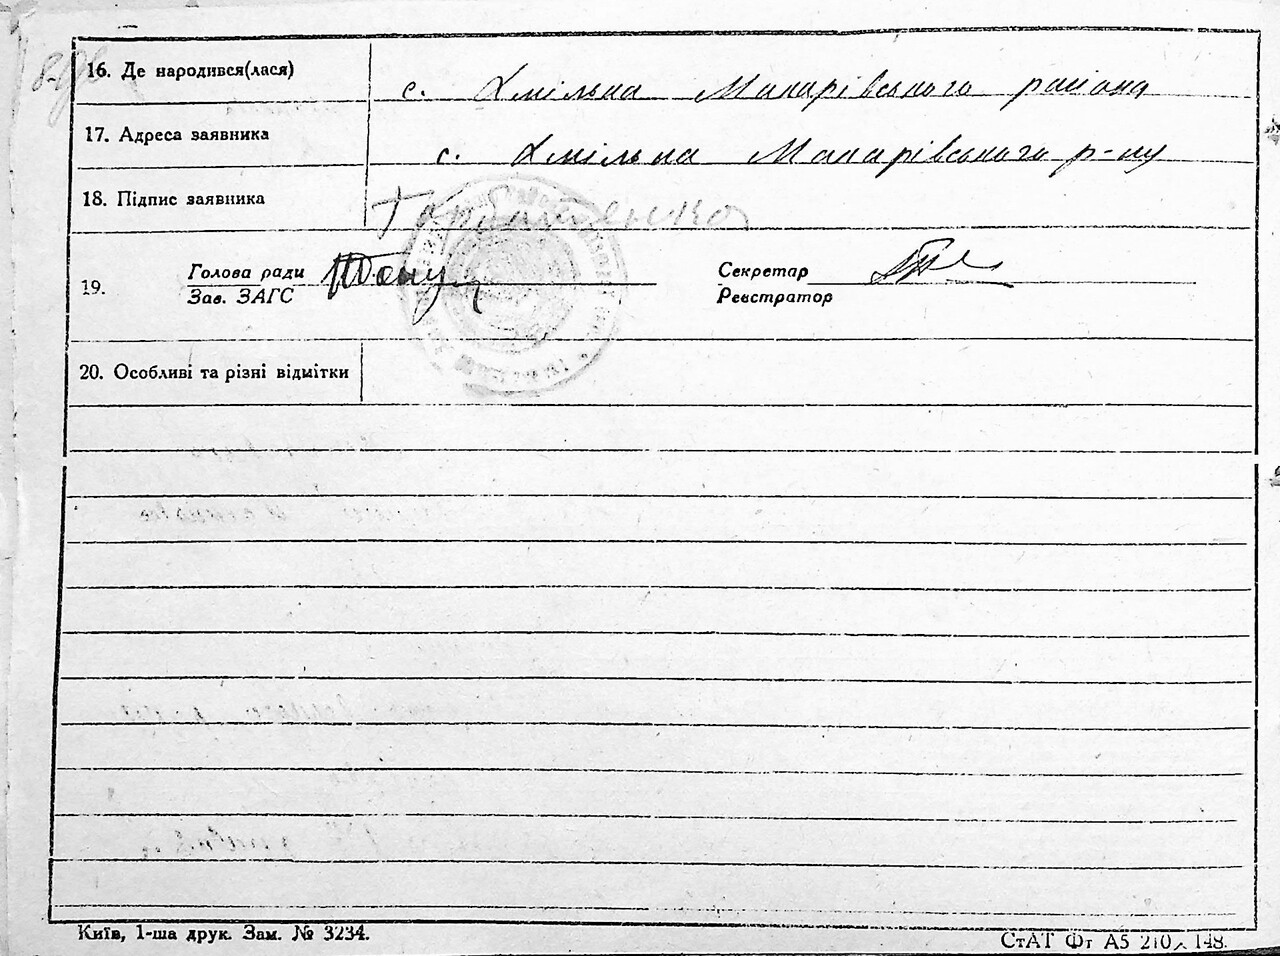 16. Де народився(лася)
с. Хмільна Макарівського района
17. Адреса заявника
с. Хмільна Макарівського р-ну
18. Підпис заявника
19.
Голова ради
Зав. ЗАГС
Секретар
Реєстратор
20. Особливі та різні відмітки
Київ, 1-ша друк. Зам. № 3234.
СтАТ Фт А5 210 148.